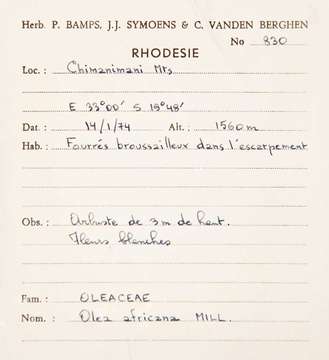 Herb. P. BAMPS, J.J. SYMOENS & C. VANDEN BERGHEN
No 830
RHODESIE
Loc. : Chimanimani Mts
E 33°00' S 19°48'
Dat. : 14/1/74 Alt. : 1560 m
Hab. : Fourrés broussailleux dans l'escarpement
Obs. : Arbuste de 3 m de haut.
Fleurs blanches
Fam. : OLEACEAE
Nom. : Olea africana MILL.